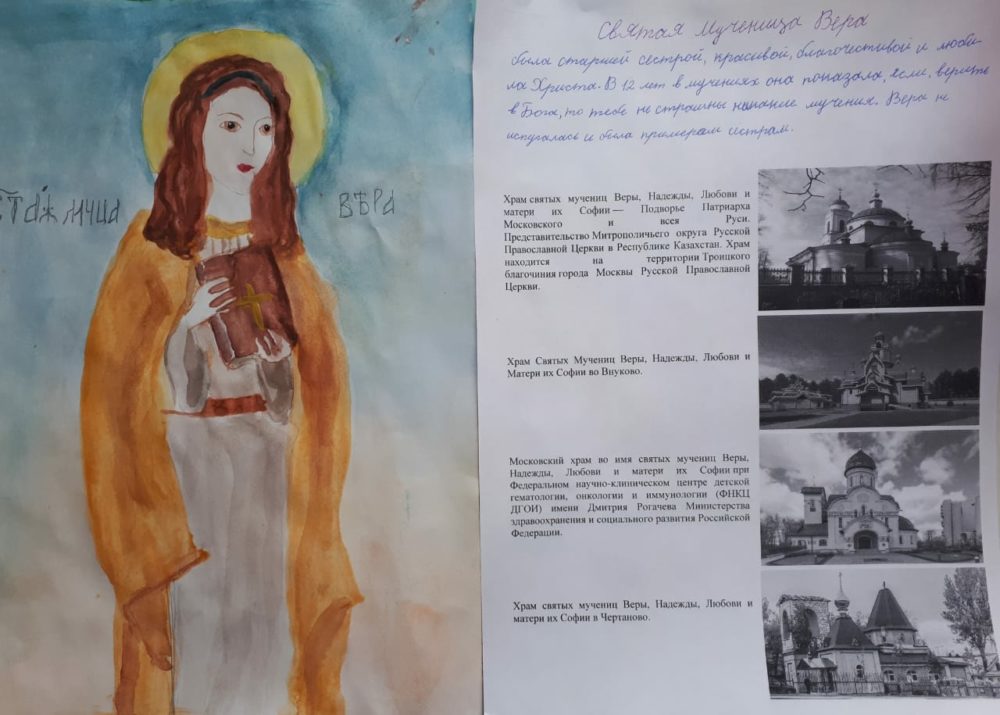 СТАЖ МЧЦА
ВѢРА
Святая Мученица Вера
была старшей сестрой, красивой, благочестивой и люби
ла Христа. В 12 лет в мучениях она показала, если, верить
в Бога, то тебе не страшны никакие мучения. Вера не
испугалась и была примером сестрам.
Храм святых мучениц Веры, Надежды, Любови и
матери их Софии — Подворье Патриарха
Московского и всея Руси.
Представительство Митрополичьего округа Русской
Православной Церкви в Республике Казахстан. Храм
находится на территории Троицкого
благочиния города Москвы Русской Православной
Церкви.
Храм Святых Мучениц Веры, Надежды, Любови и
Матери их Софии во Внуково.
Московский храм во имя святых мучениц Веры,
Надежды, Любови и матери их Софии при
Федеральном научно-клиническом центре детской
гематологии, онкологии и иммунологии (ФНКЦ
ДГОИ) имени Дмитрия Рогачева Министерства
здравоохранения и социального развития Российской
Федерации.
Храм святых мучениц Веры, Надежды, Любови и
матери их Софии в Чертаново.